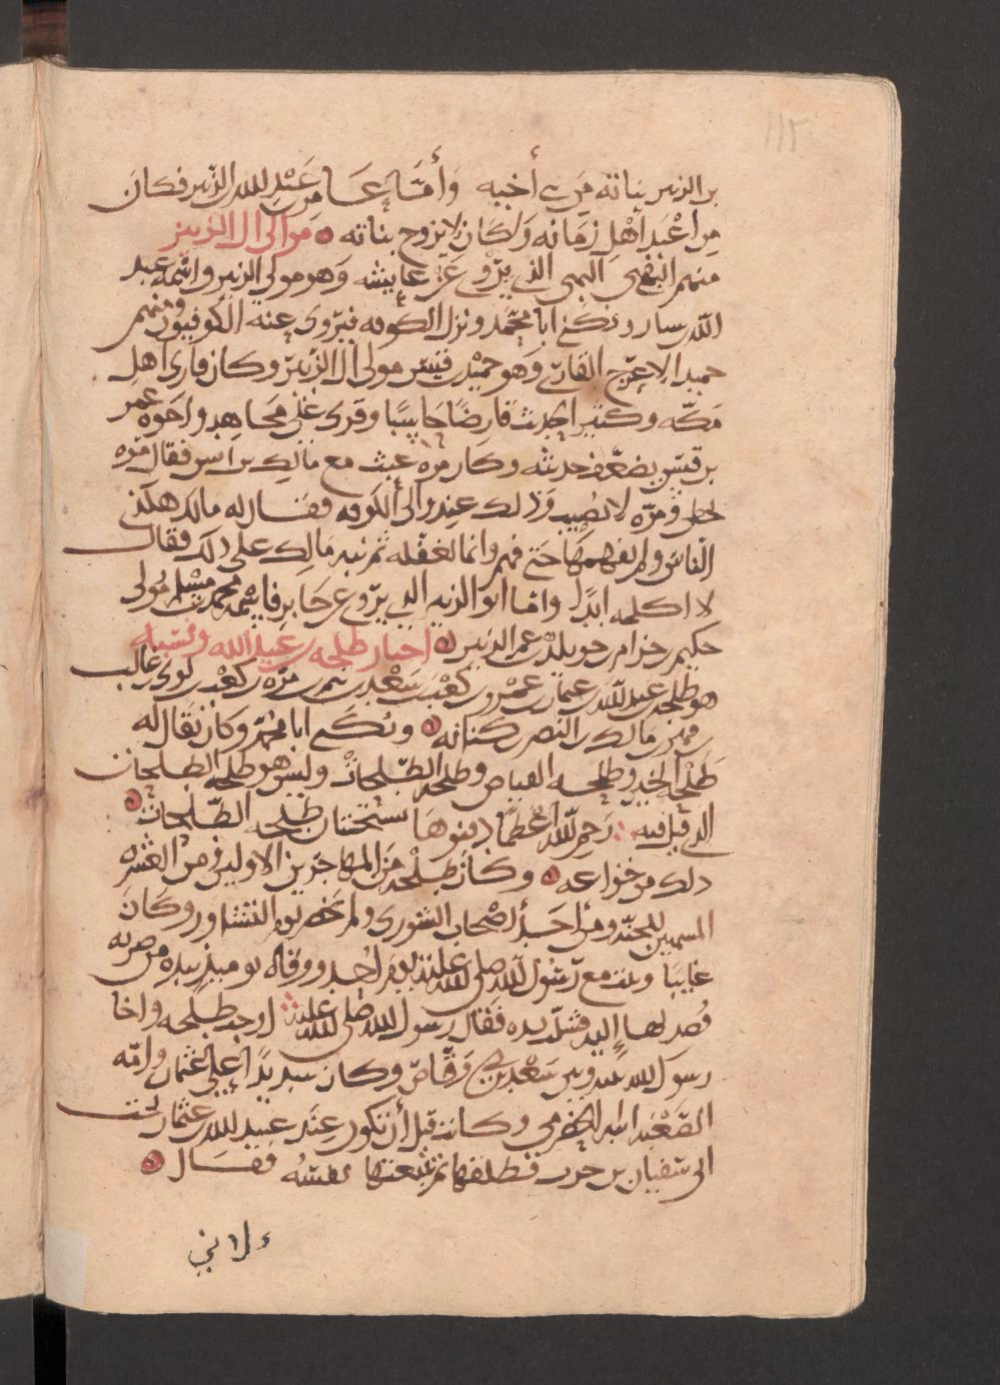 ١١٢
بن الزبير بناته من بني أخيه وأمّا عامر بن عبد الله بن الزبير فكان
من اعبد اهل زمانه وكان لا يزوج بناته ۞ موالي ال الزبير
منهم البهي الذي يروي عن عايشه وهو مولى الزبير واسمه عبد
الله بن سار ويكنى ابا محمد ونزل الكوفه فيروى عنه الكوفيون ومنهم
حميد الاعرج القارئ وهو حميد بن قيس مولى ال الزبير وكان قارى اهل
مكه وكثير الحديث فارضا حاسبا وقرى على مجاهد واخوه عمر
بن قيس يضعف حديثه وكان مره عبث مع مالك بن انس فقال مره
يخطى ومره لا يصيب وذلك عند والى الكوفه فقال له مالك هكذى
الناس ولم يفهمها حتى فهم وانما لغفله ثم نبه مالك على ذلك فقال
لا اكلمه ابدا واما ابو الزبير الذي يروي عن جابر فاسمه محمد بن مسلم مولى
حكيم بن حزام بن خويلد بن عم الزبير ۞ اخبار طلحه بن عبيد الله ونسبته
هو طلحه بن عبيد الله بن عثمان بن عمرو بن كعب بن سعد بن تيم بن مره بن كعب بن لوى بن غالب
بن فهر بن مالك بن النضر بن كنانه ۞ ويكنى ابا محمد وكان يقال له
طلحة الخير وطلحه الفياض وطلحه الطلحات وليس هو طلحه الطلحات
الذى قيل فيه رحم الله اعظما دفنوها بسجستان طلحه الطلحات ۞
ذلك من خزاعه ۞ وكان طلحه من المهاجرين الاولين ومن العشره
المسمين للجنه ومن احد أصحاب الشورى ولم يحضر يوم التشاور وكان
غايبا وثبت مع رسول الله صلى الله عليه يوم احد ووقاه يوميذ بيده من ضربه
قصد بها إليه فشلت يده فقال رسول الله صلى الله عليه اوجب طلحه واخا
رسول الله بينه وبين سعد بن ابي وقاص وكان شديدا على عثمان وامه
الصعبه ابنه الحضرمي وكانت قبل أن تكون عند عبيد الله بن عثمان تحت
ابى سفيان بن حرب فطلقها ثم تبعتها نفسه فقال ۞